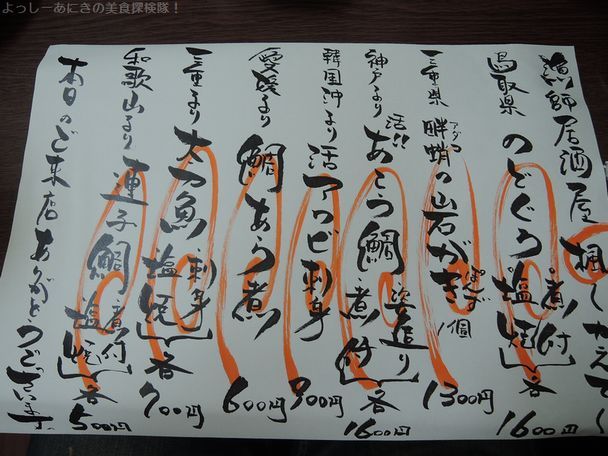 よっしーあにきの美食探検隊!
漁師居酒屋 楓〜かえで〜
鳥取県 のどぐろ 煮付 塩焼 各 1600円
三重県 畔蛸の岩がき 1個 1300円
アダコ
神戸より 活!! あこう鯛 姿造り 煮付 各 1600円
韓国沖より 活アワビ刺身 900円
愛媛より 鯛あら煮 600円
三重より 太刀魚 刺身 塩焼 各 700円
和歌山より 連子鯛 煮付 塩焼 各 500円
本日のご来店ありがとうございます